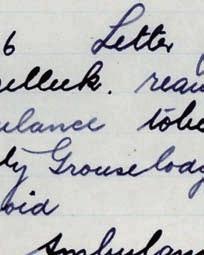 6 Letter
elleek. rea
ulance tobe
ly Grouselodg
oid
Ambulan